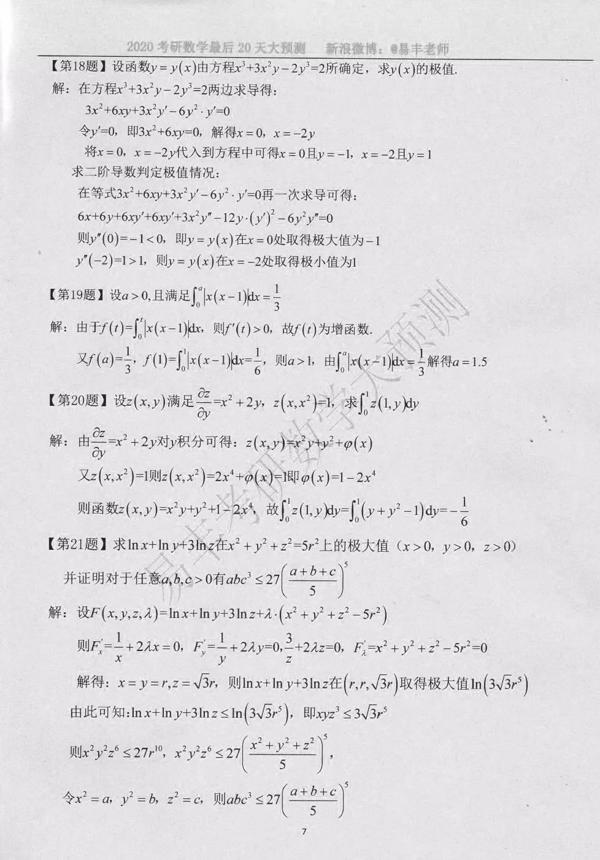 2020考研数学最后20天大预测 新浪微博：@易丰老师
【第18题】设函数y=y(x)由方程x³+3x²y−2y³=2所确定，求y(x)的极值.
解：在方程x³+3x²y−2y³=2两边求导得：
3x²+6xy+3x²y′−6y²·y′=0
令y′=0，即3x²+6xy=0，解得x=0，x=−2y
将x=0，x=−2y代入到方程中可得x=0且y=−1，x=−2且y=1
求二阶导数判定极值情况：
在等式3x²+6xy+3x²y′−6y²·y′=0再一次求导可得：
6x+6y+6xy′+6xy′+3x²y″−12y·(y′)²−6y²y″=0
则y″(0)=−1<0，即y=y(x)在x=0处取得极大值为−1
y″(−2)=1>1，则y=y(x)在x=−2处取得极小值为1
【第19题】设a>0,且满足∫₀ᵃ|x(x−1)|dx=1/3
解：由于f(t)=∫₀ᵗ|x(x−1)|dx，则f′(t)>0，故f(t)为增函数.
又f(a)=1/3，f(1)=∫₀¹|x(x−1)|dx=1/6，则a>1，由∫₀ᵃ|x(x−1)|dx=1/3解得a=1.5
【第20题】设z(x,y)满足∂z/∂y=x²+2y，z(x,x²)=1，求∫₀¹z(1,y)dy
解：由∂z/∂y=x²+2y对y积分可得：z(x,y)=x²y+y²+φ(x)
又z(x,x²)=1则z(x,x²)=2x⁴+φ(x)=1即φ(x)=1−2x⁴
则函数z(x,y)=x²y+y²+1−2x⁴，故∫₀¹z(1,y)dy=∫₀¹(y+y²−1)dy=−1/6
【第21题】求lnx+lny+3lnz在x²+y²+z²=5r²上的极大值（x>0，y>0，z>0）
并证明对于任意a,b,c>0有abc³≤27((a+b+c)/5)⁵
解：设F(x,y,z,λ)=lnx+lny+3lnz+λ·(x²+y²+z²−5r²)
则F′ₓ=1/x+2λx=0，F′_y=1/y+2λy=0,3/z+2λz=0，F′_λ=x²+y²+z²−5r²=0
解得：x=y=r,z=√3r，则lnx+lny+3lnz在(r,r,√3r)取得极大值ln(3√3r⁵)
由此可知:lnx+lny+3lnz≤ln(3√3r⁵)，即xyz³≤3√3r⁵
则x²y²z⁶≤27r¹⁰，x²y²z⁶≤27((x²+y²+z²)/5)⁵，
令x²=a，y²=b，z²=c，则abc³≤27((a+b+c)/5)⁵
7
易丰考研数学大预测